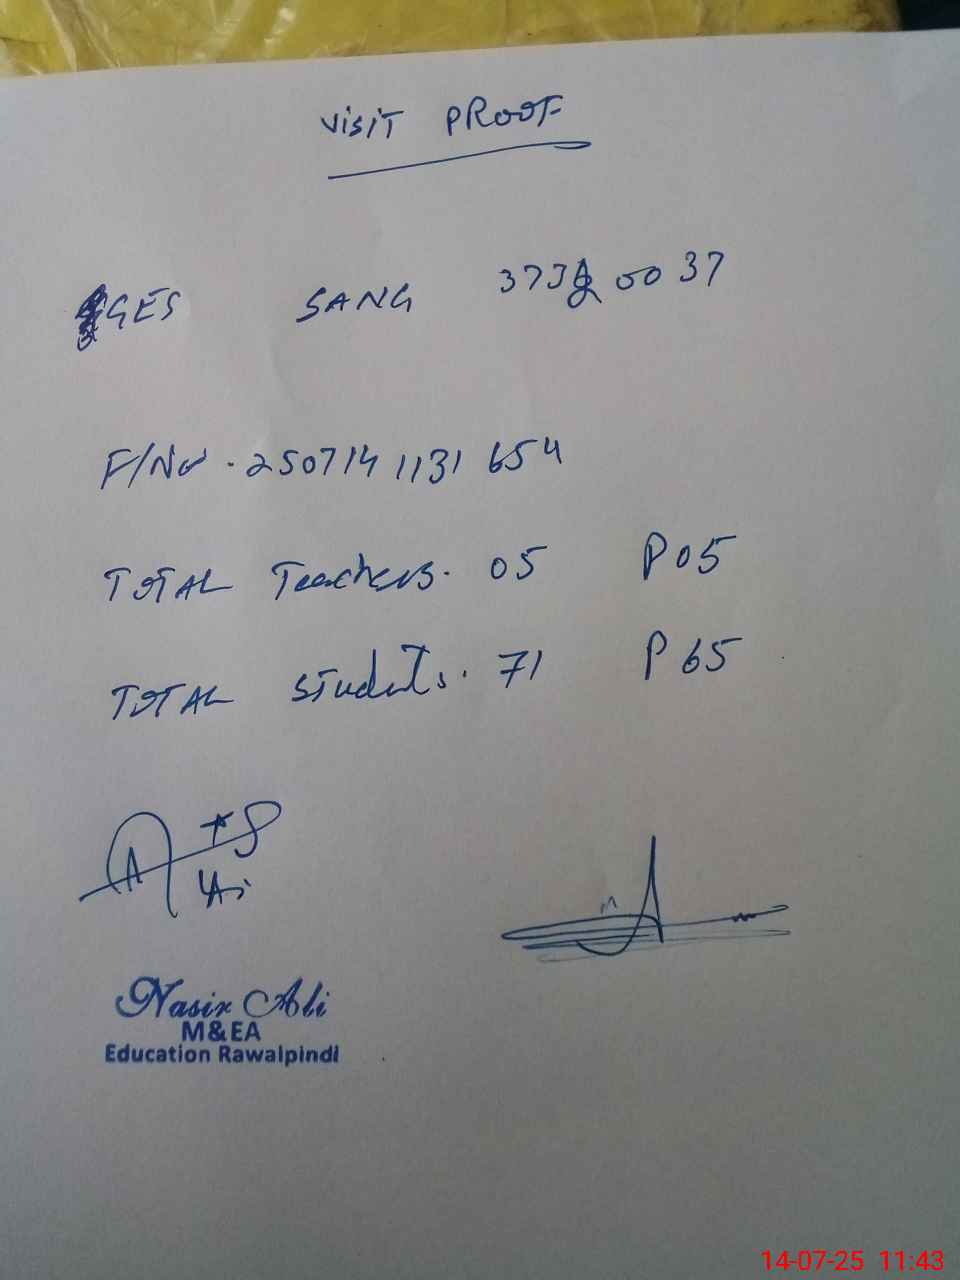 VISIT PROOF
GES SANG 37320037
F/No. 250714 1131 654
TOTAL Teachers. 05 P 05
TOTAL Students. 71 P 65
Nasir Ali
M&EA
Education Rawalpindi
14-07-25 11:43